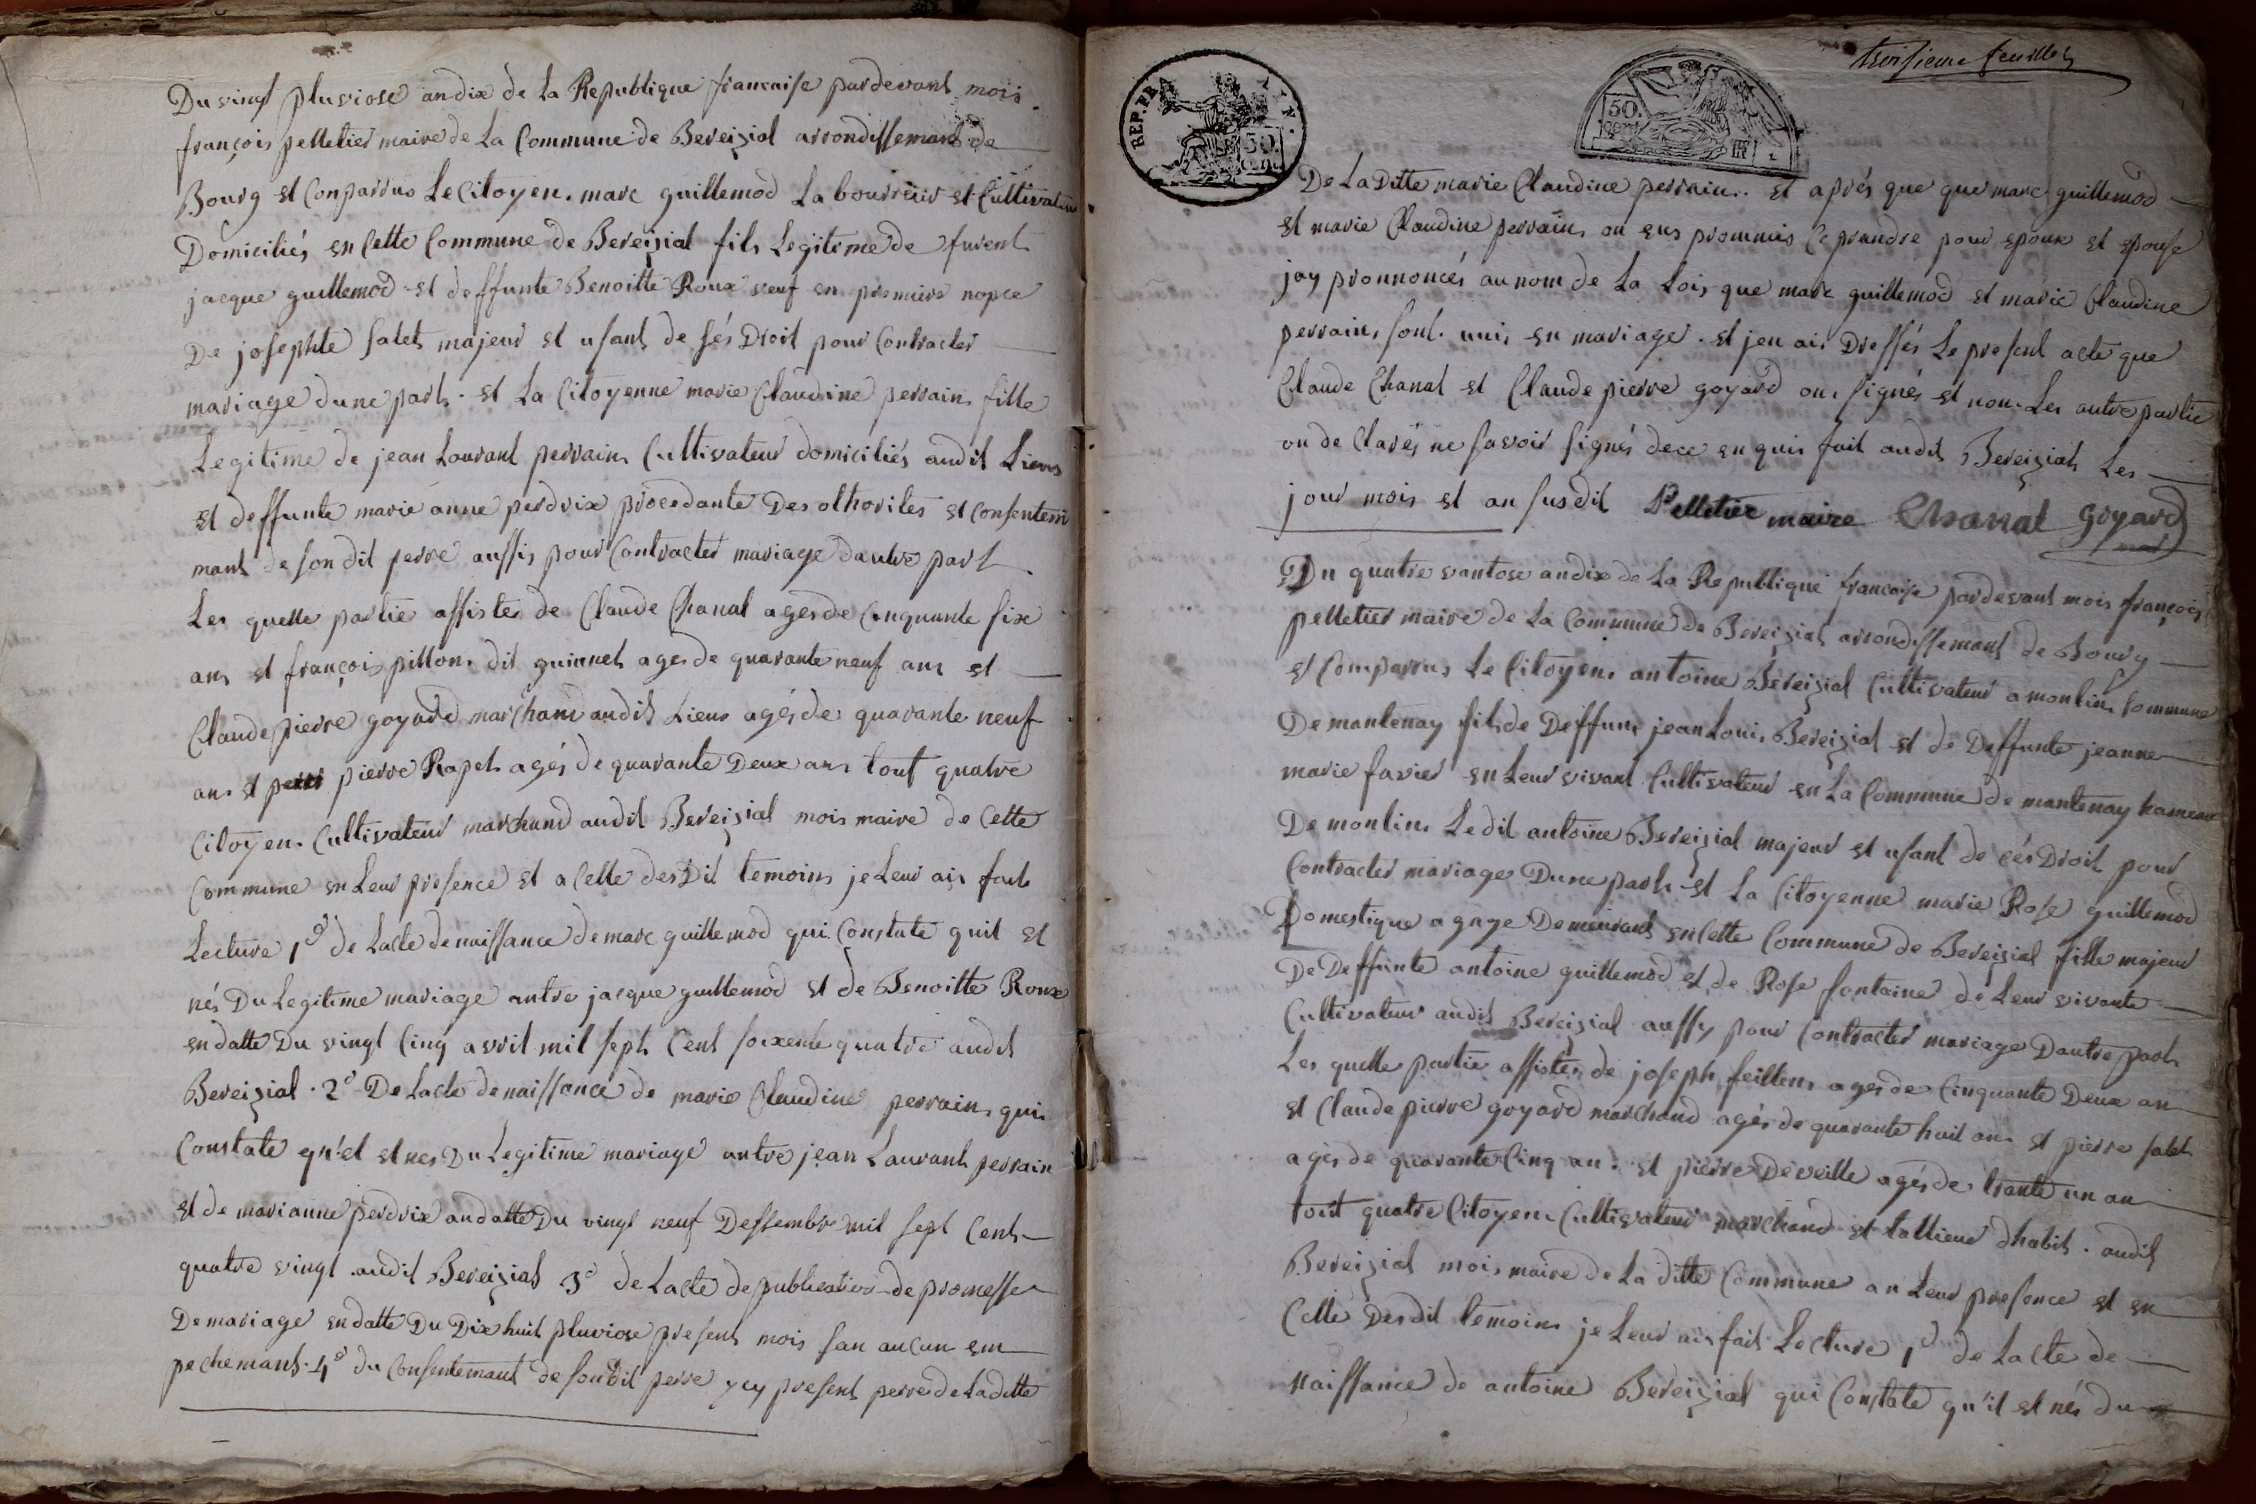 Du vingt pluviose an dix de La Republique francaise pardevant mois
françois pelletier maire de La Commune de Bereizial arrondissemant de
Bourg st Comparrus Le Citoyen. marc guillemod Labourreur st Cultivateur
Domiciliés en Cette Commune de Bereizial fils Legitime de furent
jacque guillemod st deffunte Benoitte Roux veuf en premiere nopce
De josephte salet majeur st usant de sés Droit pour Contracter
mariage dune part. st La Citoyenne marie Claudine perrain fille
Legitime de jean Lourant perrain Cultivateur domiciliés audit Lieux
st deffunte marie anne perdrix procedante Des othorites st Consentem
mant de son dit perre aussis pour Contracter mariage dautre part
Les quelle partie assistes de Claude Chanal ages de Cinquante six
ans st françois pillon dit guinnet ages de quarante neuf ans st
Claude pierre goyard marchand audit Lieux agés de quarante neuf
ans st pierre Rapet agés de quarante Deux ans tout quatre
Citoyen Cultivateur marchand audit Bereizial mois maire de Cette
Commune en Leur presence st a Celle des Dit temoins je Leur ais fait
Lecture 1° de Lacte de naissance de marc guillemod qui Constate quil st
nés Du Legitime mariage antre jacque guillemod st de Benoitte Roux
en datte Du vingt Cinq avril mil sept Cent soixente quatre audit
Bereizial. 2° De Lacte de naissance de marie Claudine perrain qui
Constate qu'el st nes Du Legitime mariage antre jean Laurant perrain
st de marianne perdrix an datte Du vingt neuf Dessembre mil sept Cent
quatre vingt audit Bereizial 3° de Lacte de publication de promesse
De mariage en datte Du Dix huit pluviose present mois san aucun em
pechemant. 4° du Consentemant de son Dit perre ycy present perre de Laditte
troisieme feuillet
REP. FR. AIN.
50. cent.
50. cent.
De La Ditte marie Claudine perrain. st aprés que que marc guillemod
st marie Claudine perrain on eus prommis Ce prandre pour epoux st epouse
jay pronnoncés au nom de La Lois que mark guillemod st marie Claudine
perrain sont unis en mariage. st jen ais Dressés Le present acte que
Claude Chanal st Claude pierre goyard on signés st non Les autre partie
on de Clarés ne savoir signés de ce en quis fait audit Bereizial Les
jour mois st an susdit Pelletier maire Chanal Goyard
Du quatre vantose an dix de La Republique francaise pardevant mois françois
pelletier maire de La Commune de Bereizial arrondissemant de Bourg
st Comparrus Le Citoyen antoine Bereizial Cultivateur a monlin Commune
De mantenay fils de Deffunt jean Louis Bereizial st de Deffunte jeanne
marie favier en Leur vivant Cultivateur en La Commune de mantenay hameau
De monlin Le dit antoine Bereizial majeur st usant de cés Droit pour
Contracter mariage Dune part st La Citoyenne marie Rose guillemod
Domestique a gage Demeurant en Cette Commune de Bereizial fille majeur
De Deffunte antoine guillemod st de Rose fontaine de Leur vivante
Cultivateur audit Bereizial aussy pour Contracter mariage Dautre part
Les quelle partie assistes de joseph feillens ages de Cinquante Deux an
st Claude pierre goyard marchand agés de quarante huit ans st pierre salet
agés de quarante Cinq an. st pierre Deveille agés de trante un an
tout quatre Citoyen Cultivateur marchand st tallieur dhabit. audit
Bereizial mois maire de La ditte Commune an Leur presence st en
Celle Desdit temoins je Leur ais fait Lecture 1° de Lacte de
Naissance de antoine Bereizial qui Constate qu'il st nés du